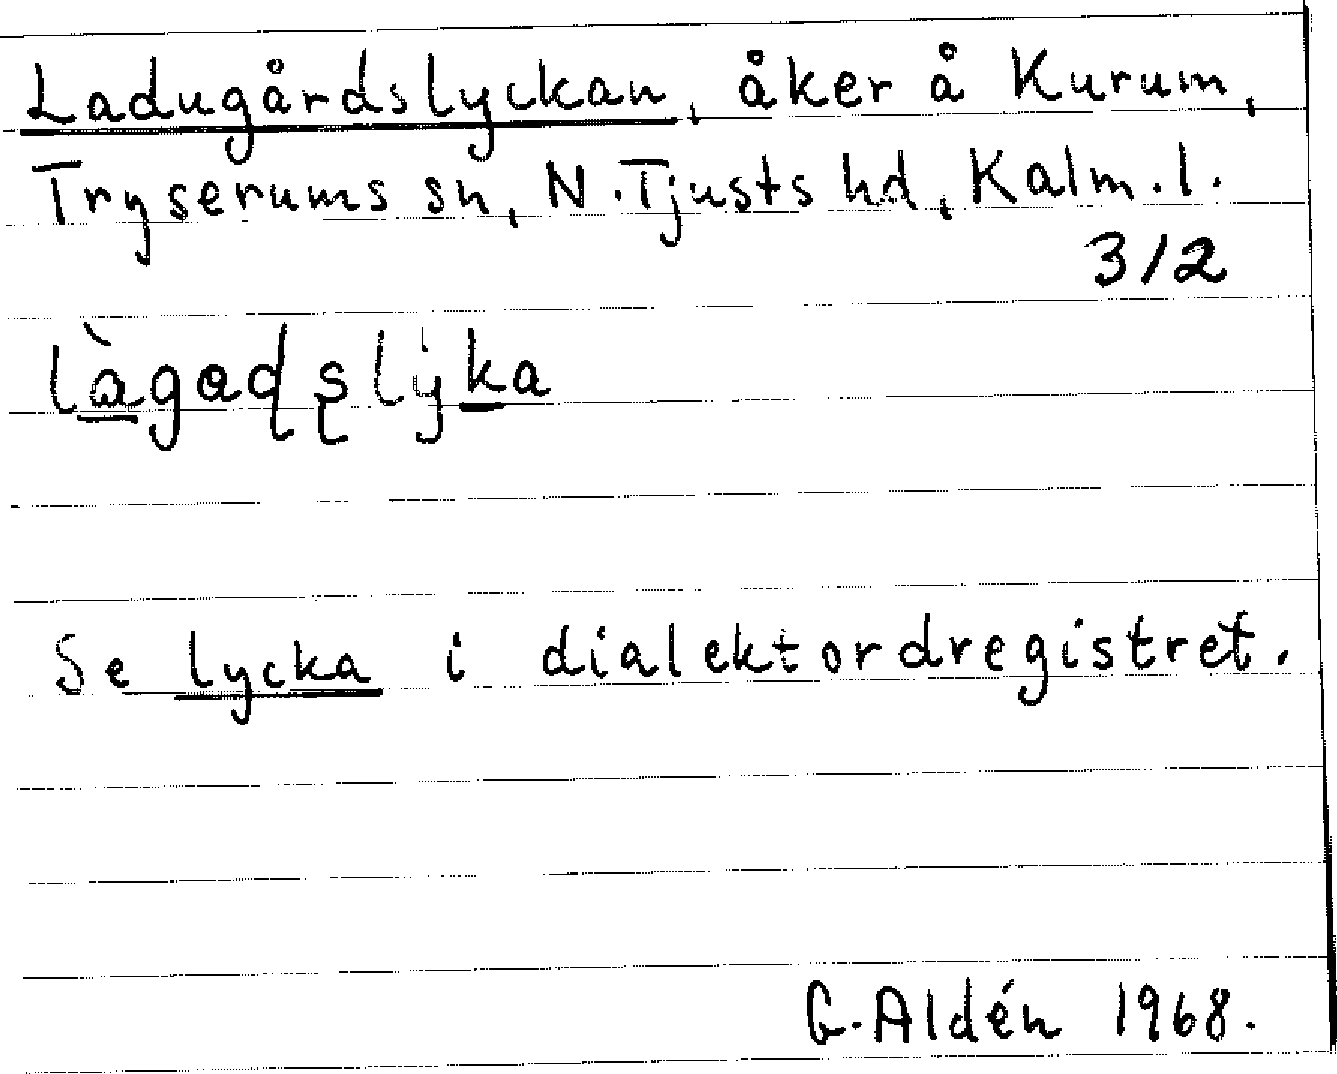 Ladugårdslyckan, åker å Kurum,
Tryserums sn, N. Tjusts hd, Kalm. l.
3/2
làgɑdʂlẏka
Se lycka i dialektordregistret.
G. Aldén 1968.